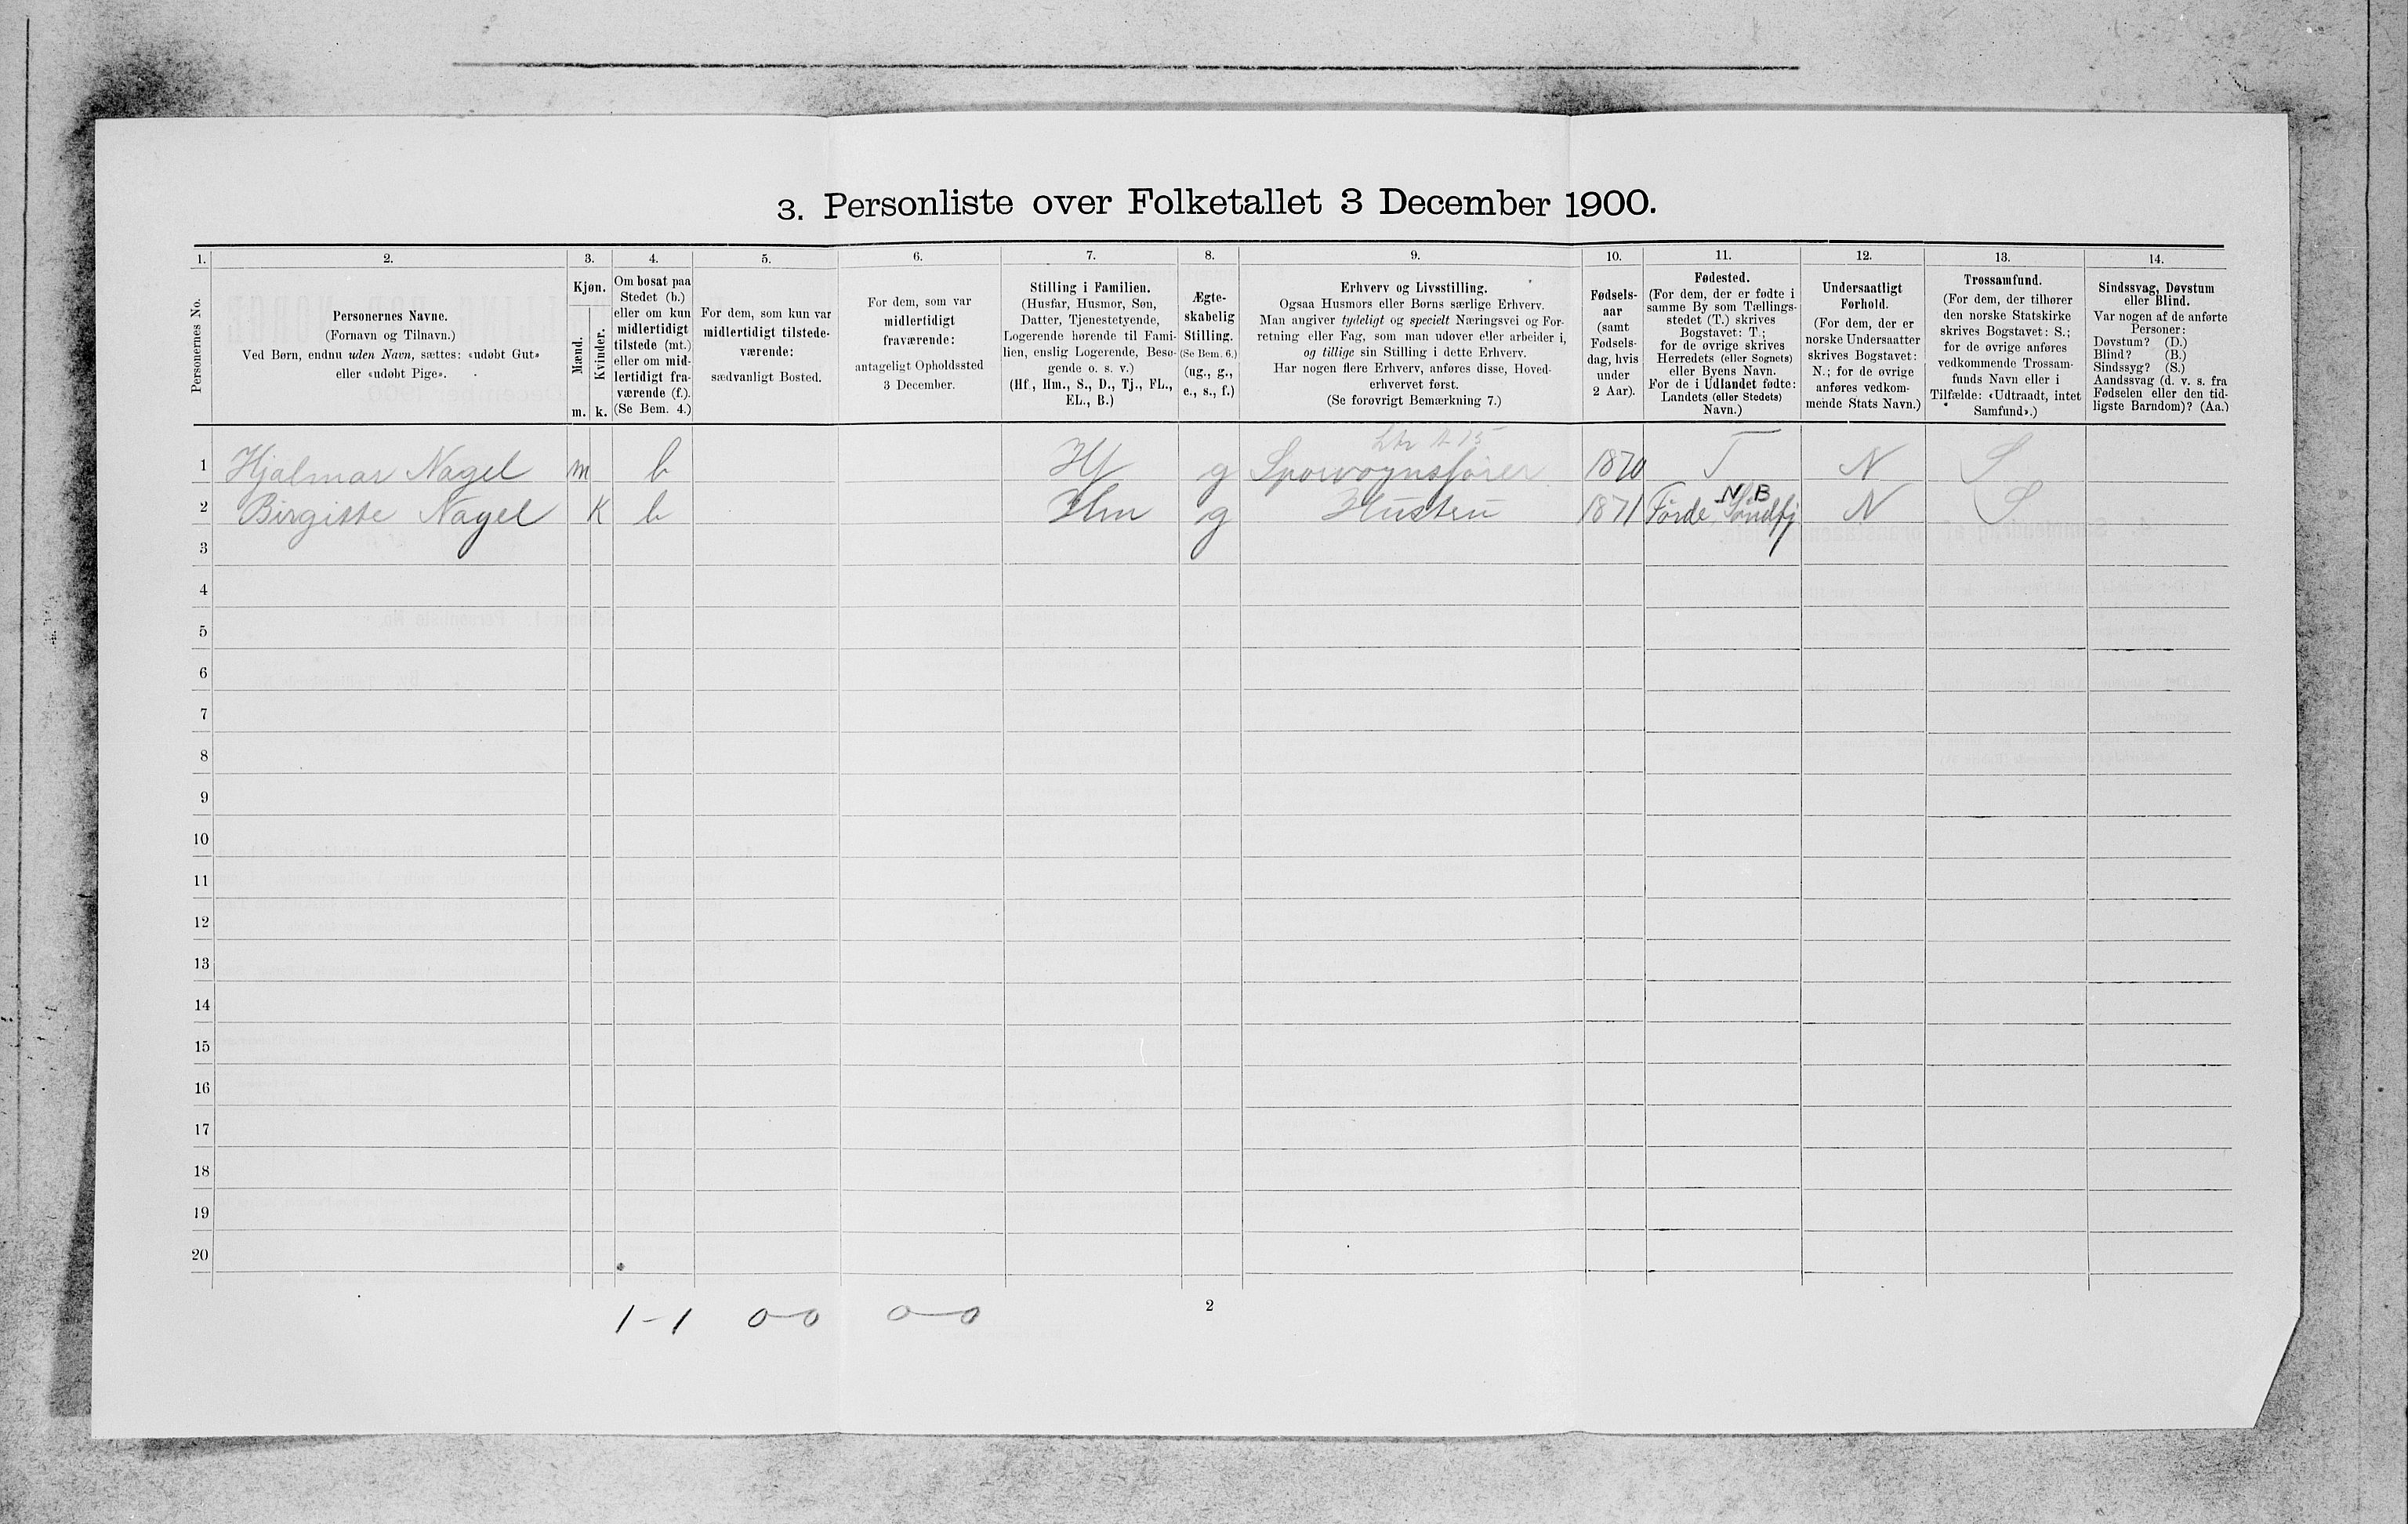 3. Personliste over Folketallet 3 December 1900.
1. 2. 3. 4. 5. 6. 7. 8. 9. 10. 11. 12. 13. 14.
Personernes No.
Personernes Navne.
(Fornavn og Tilnavn.)
Ved Børn, endnu uden Navn, sættes: «udøbt Gut»
eller «udøbt Pige».
Kjøn.
Mænd.
Kvinder.
m. k.
Om bosat paa
Stedet (b.)
eller om kun
midlertidigt
tilstede (mt.)
eller om mid-
lertidigt fra-
værende (f.).
(Se Bem. 4.)
For dem, som kun var
midlertidigt tilstede-
værende:
sædvanligt Bosted.
For dem, som var
midlertidigt
fraværende:
antageligt Opholdssted
3 December.
Stilling i Familien.
(Husfar, Husmor, Søn,
Datter, Tjenestetyende,
Logerende hørende til Fami-
lien, enslig Logerende, Besø-
gende o. s. v.)
(Hf., Hm., S., D., Tj., FL.,
EL., B.)
Ægte-
skabelig
Stilling.
(Se Bem. 6.)
(ug., g.,
e., s., f.)
Erhverv og Livsstilling.
Ogsaa Husmors eller Børns særlige Erhverv.
Man angiver tydeligt og specielt Næringsvei og For-
retning eller Fag, som man udøver eller arbeider i,
og tillige sin Stilling i dette Erhverv.
Har nogen flere Erhverv, anføres disse, Hoved-
erhvervet først.
(Se forøvrigt Bemærkning 7.)
Fødsels-
aar
(samt
Fødsels-
dag, hvis
under
2 Aar).
Fødested.
(For dem, der er fødte i
samme By som Tællings-
stedet (T.) skrives
Bogstavet: T.;
for de øvrige skrives
Herredets (eller Sognets)
eller Byens Navn.
For de i Udlandet fødte:
Landets (eller Stedets)
Navn.)
Undersaatligt
Forhold.
(For dem, der er
norske Undersaatter
skrives Bogstavet:
N.; for de øvrige
anføres vedkom-
mende Stats Navn.)
Trossamfund.
(For dem, der tilhører
den norske Statskirke
skrives Bogstavet: S.;
for de øvrige anføres
vedkommende Trossam-
funds Navn eller i
Tilfælde: «Udtraadt, intet
Samfund».)
Sindssvag, Døvstum
eller Blind.
Var nogen af de anførte
Personer:
Døvstum? (D.)
Blind? (B.)
Sindssyg? (S.)
Aandssvag (d. v. s. fra
Fødselen eller den tid-
ligste Barndom)? (Aa.)
1 Hjalmar Nagel m b Hf g Sporvognsfører 1870 T N S
N B
2 Birgitte Nagel K b Hm g Hustru 1871 Førde, Søndfj N S
3
4
5
6
7
8
9
10
11
12
13
14
15
16
17
18
19
20
1-1 0-0 0-0
2